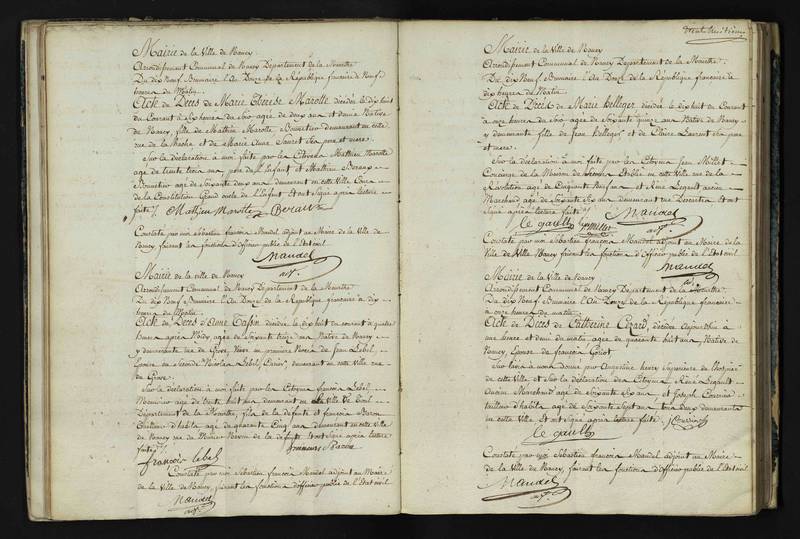 Mairie de la Ville de Nancy
Arrondissement Communal de Nancy Departement de la Meurthe
Du dix Neuf Brumaire l'An Douze de la République francaise à Neuf
heures du Matin
Acte de Deces de Marie Therese Marotte décédée le dix huit
du Courant à Six heures du Soir agée de deux ans et demie Native
de Nancy, fille de Mathieu Marotte, demeurant en cette
rue de la et de Marie Anne Sauret Ses pere et mere.
Sur la déclaration à moi faite par les Citoyens Mathieu Marotte
agé de trente trois ans pere de l'Enfant et Mathieu
agé de Soixante deux ans demeurant en cette Ville Cour
de la Constitution Grand oncle de l'Enfant Et ont Signé après lecture
faite /. Mathieu Marotte
Constaté par moi Sébastien françois Mandel adjoint au Maire de la Ville de
Nancy faisant les fonctions d'officier public de l'Etat civil
Mandel
adjt.
Mairie de la Ville de Nancy
Arrondissement Communal de Nancy Departement de la Meurthe
Du dix Neuf Brumaire l'An Douze de la République française à dix
heures du Matin
Acte de Deces d'Anne Tassin décédée le dix huit du courant à quatre
heures après Midy agée de Soixante treize ans Native de Nancy
y demeurante rue de Grève, Veuve en premiere Noces de Jean Lebel
Epouse en Seconde Nicolas Lebel, demeurant en cette Ville rue
de Grève
Sur la déclaration à moi faite par les Citoyens françois Lebel
Menuisier agé de trente huit ans demeurant en Ville de Toul
Departement de la Meurthe, fils de la defunte et françois Baron
d'habits agé de quarante Cinq ans demeurant en cette Ville
de Nancy rue du de la defunte Et ont Signé après lecture
faite /.
françois lebel
Constaté par moi Sébastien françois Mandel adjoint au Maire
de la Ville de Nancy, faisant les fonctions d'officier public de l'Etat civil
Mandel
adjt.
Mairie de la Ville de Nancy
Arrondissement Communal de Nancy Departement de la Meurthe
Du dix Neuf Brumaire l'An Douze de la République française à
dix heures du Matin
Acte de Deces de Marie Belleger décédée le dix huit du Courant
à onze heures du Soir agée de Soixante quinze ans Native de Nancy
y demeurante fille de Jean Belleger et de Claire Laurent Ses pere
et mere.
Sur la déclaration à moi faite par les Citoyens Jean Millet
Concierge de la Maison de Etablie en cette Ville rue de la
Révolution agé de Cinquante Neuf ans et René Legault ancien
Marchand agé de Soixante Six ans, demeurant rue Et ont
Signé après lecture faite /.
le gault Mandel
adjt.
Constaté par moi Sébastien françois Mandel adjoint au Maire de la
Ville de Nancy faisant les fonctions d'officier public de l'Etat civil
Mandel
adjt.
Mairie de la Ville de Nancy
Arrondissement Communal de Nancy Departement de la Meurthe
Du dix Neuf Brumaire l'An Douze de la République française
à onze heures du matin
Acte de Deces de Catherine Cezard, décédée Aujourd'hui à
une heure et demi du matin agée de quarante huit ans Native de
Nancy, Epouse de françois
Sur l'avis à nous Donné par Augustine henry Supérieure de l'hospice
de cette Ville et Sur la déclaration des Citoyens René Legault
Ancien Marchand agé de Soixante Six ans, et Joseph
tailleur d'habits agé de Soixante Sept ans tous deux demeurants
en cette Ville Et ont Signé après lecture faite /.
le gault
Constaté par moi Sébastien françois Mandel adjoint au Maire
de la Ville de Nancy, faisant les fonctions d'officier public de l'Etat civil
Mandel
adjt.